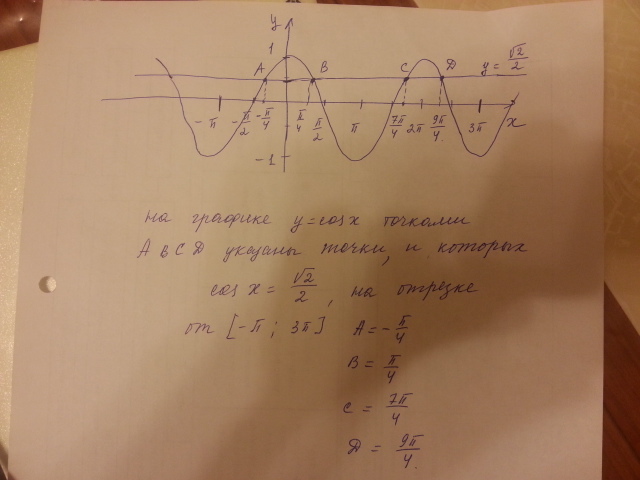 y
1
A B C D y = √2/2
-π -π/2 -π/4 π/4 π/2 π 7π/4 2π 9π/4 3π x
-1
на графике y = cos x точками
A B C D указаны точки, и которых
cos x = √2/2, на отрезке
от [-π; 3π] A = -π/4
B = π/4
C = 7π/4
D = 9π/4